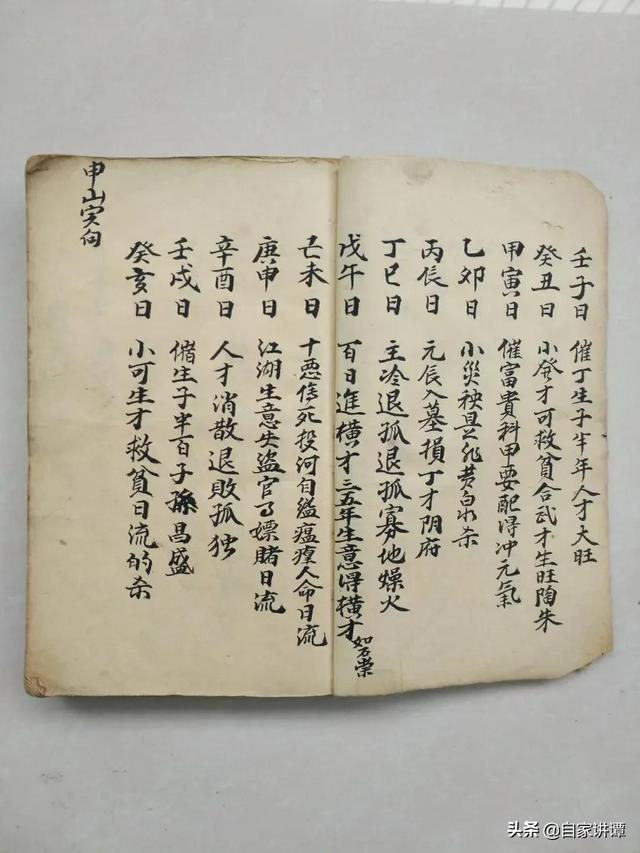 壬子日 催丁生子半年人才大旺
癸丑日 小發才可救貧合武才生旺陶朱
甲寅日 催富貴科甲要配得冲元氣
乙卯日 小災殃是非黄泉杀
丙辰日 元辰入墓損丁才阴府
丁巳日 主冷退孤退孤寡地燥火
戊午日 百日進横才三五年生意得横才如石崇
己未日 十悪傷死投河自縊瘟瘟人命日流
庚申日 江湖生意失盜官了嫖賭日流
辛酉日 人才消散退敗孤独
壬戌日 催生子半百子孫昌盛
癸亥日 小可生才救貧日流的杀
申山寅向
头条 @自家讲谭